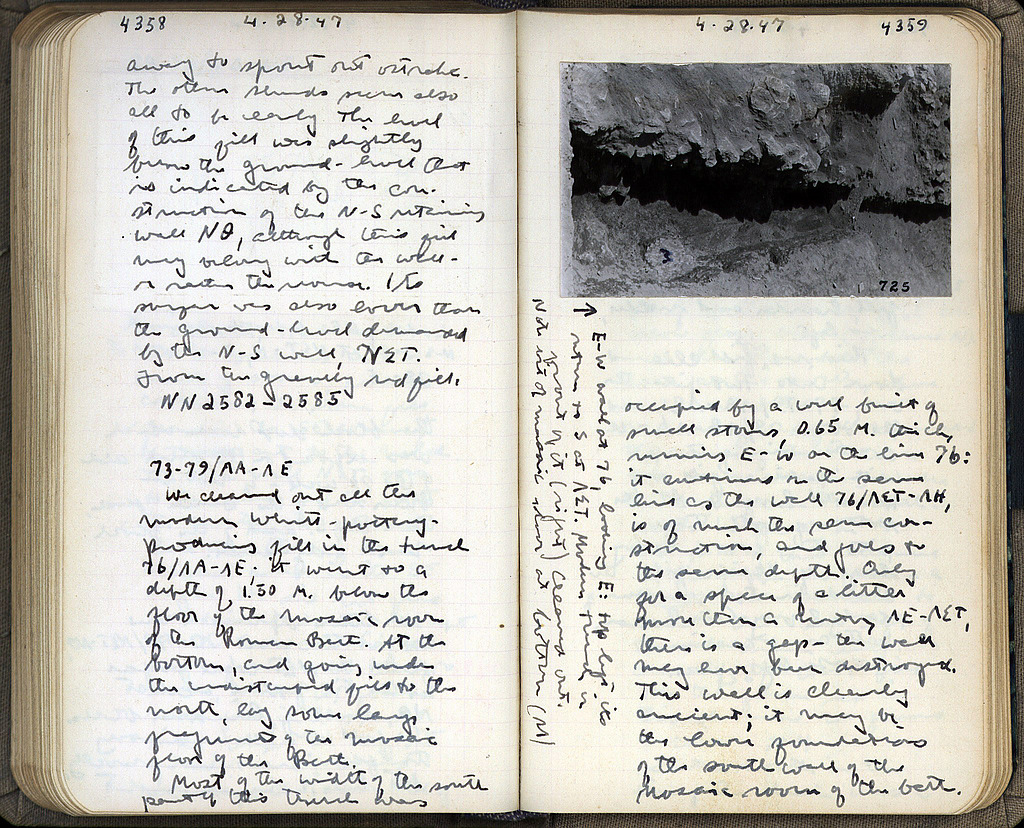 4358 4·28·47
away to sprout out ostraka.
The other sherds seem also
all to be early. The level
of this fill was slightly
below the ground-level that
is indicated by the con-
struction of the N-S retaining
wall ΝΘ, although this fill
may belong with the wall-
or rather the house. Its
surface was also lower than
the ground-level demanded
by the N-S wall, ΝΣΤ.
From the gravelly red fill.
NN 2582-2585
73-79/ΛΑ-ΛΕ
We cleaned out all the
modern white-pottery-
producing fill in the trench
76/ΛΑ-ΛΕ; it went to a
depth of 1.50 M. below the
floor of the mosaic room
of the Roman Bath. At the
bottom, and going under
the undisturbed fills to the
north, lay some large
fragments of the mosaic
floor of the Bath.
Most of the width of the south
part of this trench was
4·28·47 4359
725
↑ E-W wall at 76, looking E: top left, its
return to S at ΛΣΤ. Modern trench in
front of it (right) cleaned out.
Note bit of mosaic floor at bottom (M)
occupied by a wall built of
small stones, 0.65 M. thick,
running E-W on the line 76:
it continues on the same
line as the wall 76/ΛΣΤ-ΛΗ,
is of much the same con-
struction, and goes to
the same depth. Only
for a space of a little
more than a meter, ΛΕ-ΛΣΤ,
there is a gap- the wall
may have been destroyed.
This wall is clearly
ancient; it may be
the lower foundations
of the south wall of the
Mosaic room of the bath.